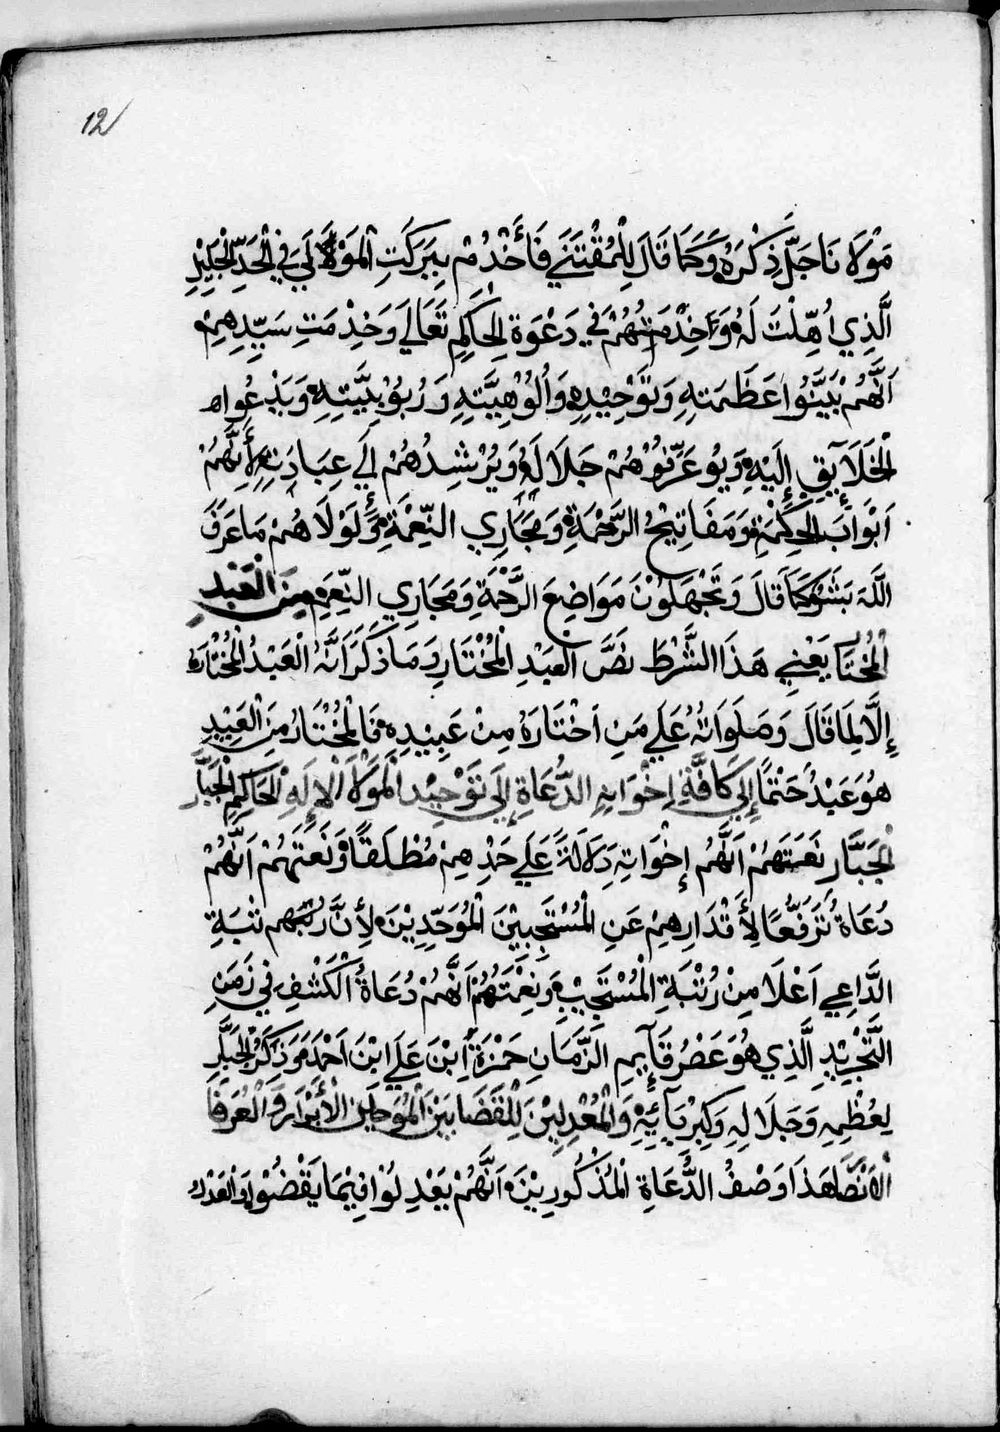 12
مَوْلَانَا جَلَّ ذِكْرَهُ وَكَمَا قَالَ لِلْمُقْتَنَي فَأَخْدُمْ بِبَرَكَتِ الْمَوْلَا لَي فِي الْحَدِّ الْجَلِيْلِ
الَّذِي اُهِّلْتَ لَهُ وَخِدْمَتُهُمْ فِي دَعْوَةِ الْحَاكِمِ تَعَالَي وَخِدْمَتِ سَيِّدِهِمْ
اَنَّهُمْ بَيَّنُوا عَظَمَتِهِ وَتَوْحِيْدِهِ وَاُلُوْهِيَّتِهِ وَرُبُوْبِيَّتِهِ وَيَدْعُوا
الْخَلَآيِقِ إِلَيْهِ وَيُوعَرِّفُوْهُمْ جَلَالَهُ وَيُرْشِدُهُمْ اِلَي عِبَادَتِهِ لِأَنَّهُمْ
اَبْوَابَ الْحِكْمَةِ وَمَفَاتِيْحُ الرَّحْمَةِ وَمَجَارِي النِّعْمَةِ وَلَوْلَاهُمْ مَا عَرَفَ
اللَّهَ بَشَرٌ كَمَا قَالَ وَتَجْهَلُوْنَ مَوَاضِعَ الرَّحْمَةِ وَمَجَارِي النِّعَمِ مِنَ الْعَبْدِ
الْمُخْتَار يَعْنِي هَذَا الشَّرْطَ نَصَّ الْعَبْدِ الْمُخْتَارِ وَمَا ذَكَرَ اَنَّهُ الْعَبْدُ الْمُخْتَارُ
إِلَّا لِمَا قَالَ وَصَلَوَاتُهُ عَلَي مَنِ اَخْتَارَهُ مِنْ عَبِيْدِهِ فَالْمُخْتَارُ مِنَ الْعَبِيْدِ
هُوَ عَبْدٌ حَتْمًا إِلَي كَافَّةِ إِخْوَانِهِ الدُّعَاةِ إِلَي تَوْحِيْدِ الْمَوْلَا الْإِلَهِ الْحَاكِمِ الْجَبَّار
الْجَبَّارِ نَعَتَهُمْ اَنَّهُم إِخْوَانِهِ دَلَالَةً عَلَي حَدِّهِمْ مُطْلَقًا وَنَعَتَهُمْ اَنَّهُمْ
دُعَاةُ تُرَفُّعًا لِأَقْدَارِهِمْ عَنِ الْمُسْتَجِيْبِيْنَ الْمُوَحِّدِيْنَ لِأَنَّ رُتْبَهِم تْبَةِ
الدَّاعِي اَعْلَا مِنْ رُتْبَةِ الْمُسْتَجِيْبِ وَنِعْمَتَهُمْ اَنَّهُمْ دُعَاةُ الْكَشْفِ فِي زَمَنِ
التَّجْرِيْدِ الَّذِي هُوَ عَصْرُ قَآيِمِ الزَّمَانِ حَمْزَةَ اِبْنَ عَلَي ابْنَ اَحْمَدَ وَذَكَرَ الْجَبَّارِ
لِعُظْمِهِ وَجَلَالِهِ وَكِبْرِيَآيِّهِ وَالْمُعْدِلِيْنَ لِلْقَضَا بَيْنَ الْمُوَحِدِيْنَ الْأَبْرَارِ وَالْعُرَفَا
الْأَنْصَار هَذَا وَصْفُ الدُّعَاةِ الْمَذْكُورِيْنَ اَنَّهُمْ يَعْدِلُوْا فِيْمَا يَقْضُوْا وَالْعَدْلُ